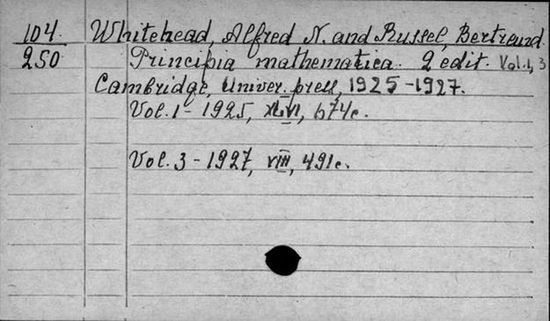 104. Whitehead, Alfred N. and Russel, Bertrand.
250 Principia mathematica. 2 edit. Vol. 1, 3
Cambridge, Univer. press, 1925-1927.
Vol. 1 - 1925, XLVI, 674c.
Vol. 3 - 1927, VIII, 491c.